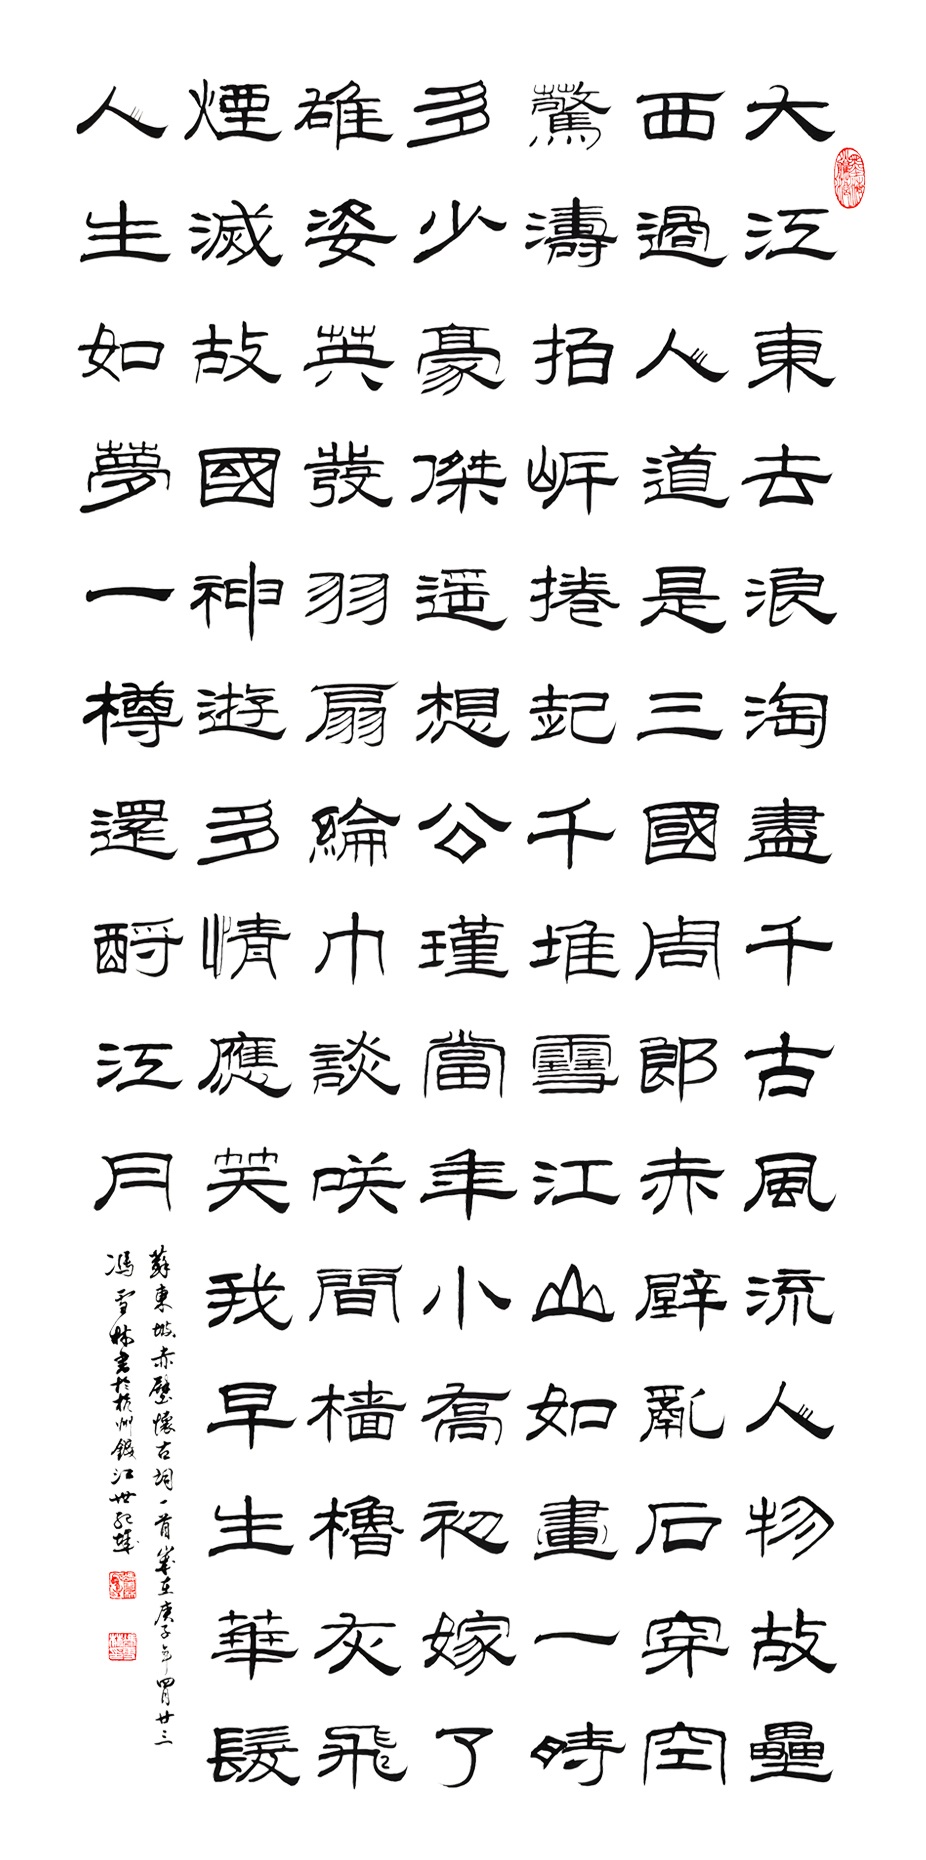 大江東去浪淘盡千古風流人物故壘
西過人道是三國周郎赤壁亂石穿空
驚濤拍岸捲起千堆雪江山如畫一時
多少豪傑遥想公瑾當年小喬初嫁了
雄姿英發羽扇綸巾談咲間檣櫓灰飛
煙滅故國神遊多情應笑我早生華髮
人生如夢一樽還酹江月
蘇東坡赤壁懷古詞一首歲在庚子年四月廿三
馮雪林書於杭州錢江世紀城